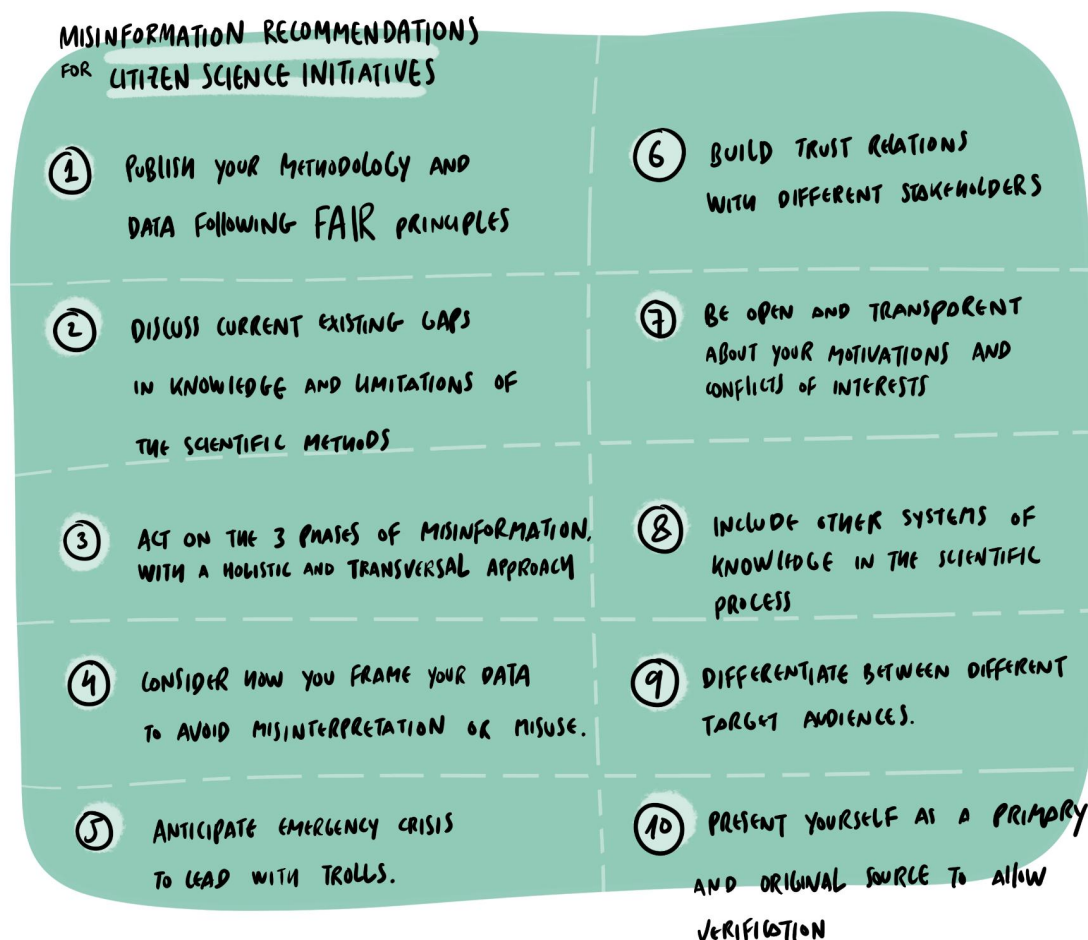 MISINFORMATION RECOMMENDATIONS
FOR CITIZEN SCIENCE INITIATIVES
1 PUBLISH YOUR METHODOLOGY AND
DATA FOLLOWING FAIR PRINCIPLES
2 DISCUSS CURRENT EXISTING GAPS
IN KNOWLEDGE AND LIMITATIONS OF
THE SCIENTIFIC METHODS
3 ACT ON THE 3 PHASES OF MISINFORMATION,
WITH A HOLISTIC AND TRANSVERSAL APPROACH
4 CONSIDER HOW YOU FRAME YOUR DATA
TO AVOID MISINTERPRETATION OR MISUSE.
5 ANTICIPATE EMERGENCY CRISIS
TO LEAD WITH TROLLS.
6 BUILD TRUST RELATIONS
WITH DIFFERENT STAKEHOLDERS
7 BE OPEN AND TRANSPARENT
ABOUT YOUR MOTIVATIONS AND
CONFLICTS OF INTERESTS
8 INCLUDE OTHER SYSTEMS OF
KNOWLEDGE IN THE SCIENTIFIC
PROCESS
9 DIFFERENTIATE BETWEEN DIFFERENT
TARGET AUDIENCES.
10 PRESENT YOURSELF AS A PRIMARY
AND ORIGINAL SOURCE TO ALLOW
VERIFICATION